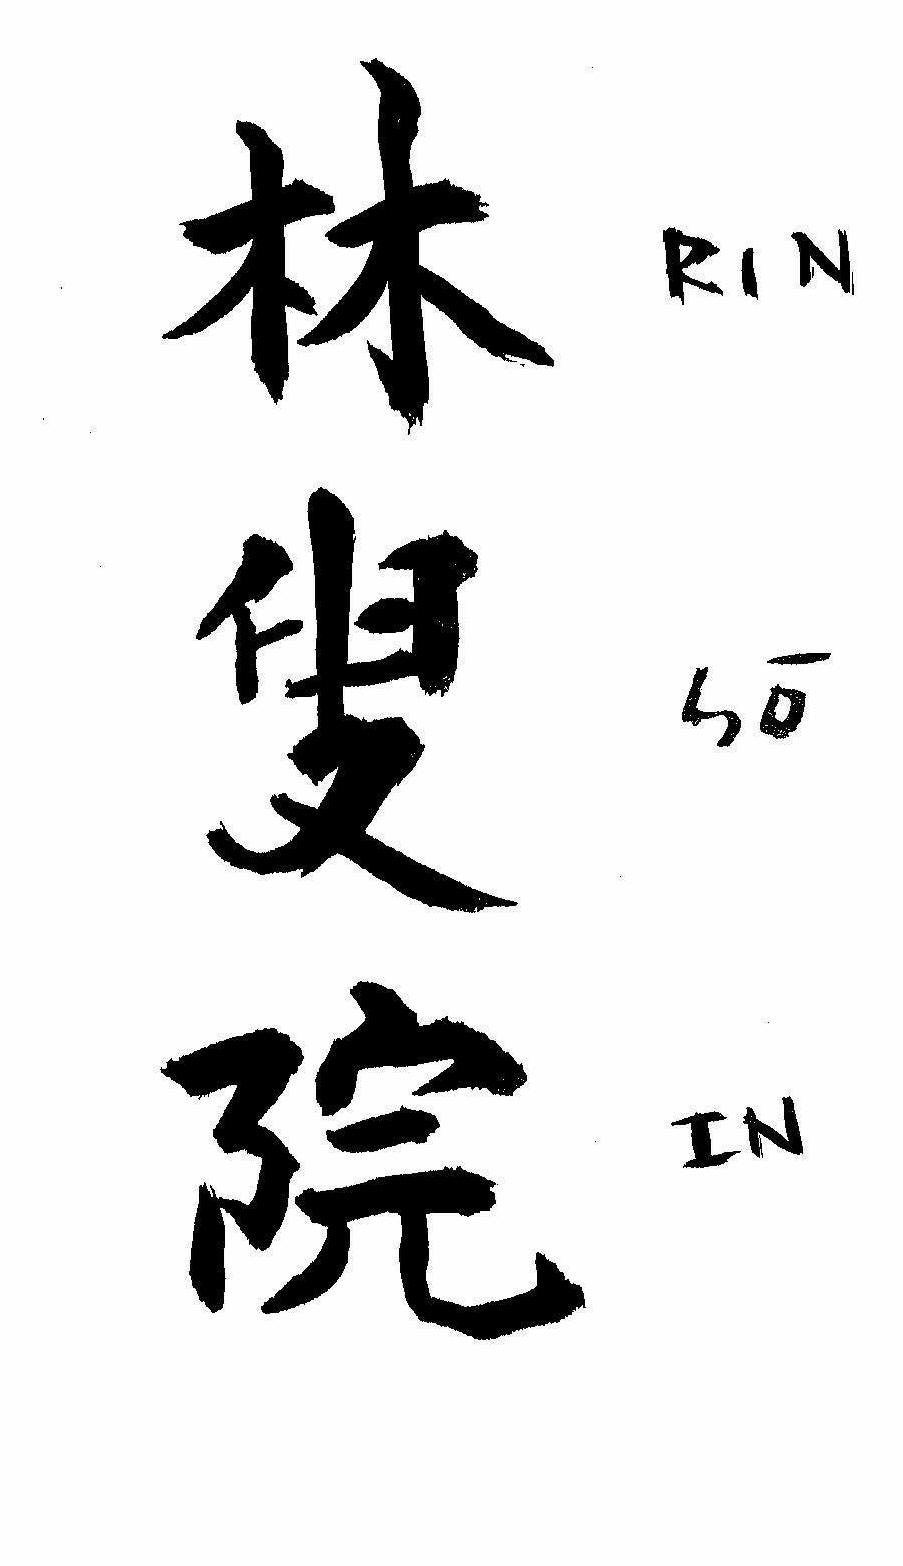 林 RIN
叟 SŌ
院 IN